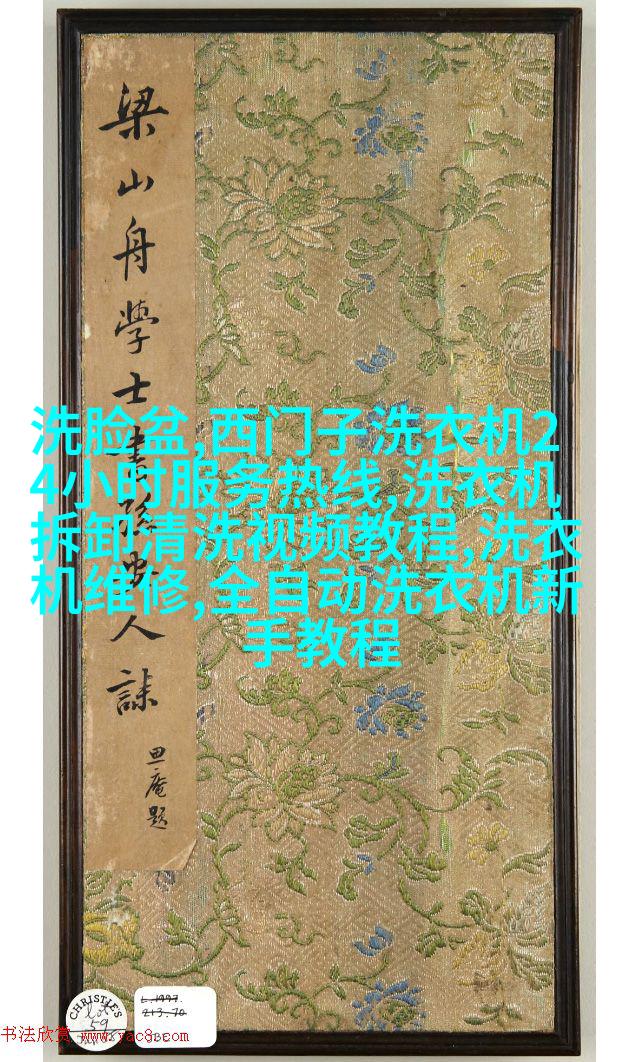 梁山舟學士書孫安人誄
庵題
洗脸盆,西门子洗衣机2
4小时服务热线,洗衣机
拆卸清洗视频教程,洗衣
机维修,全自动洗衣机新
手教程
CHRISTIE'S
Lot
59
L.1997.
213.70
书法欣赏 www.yac8.com